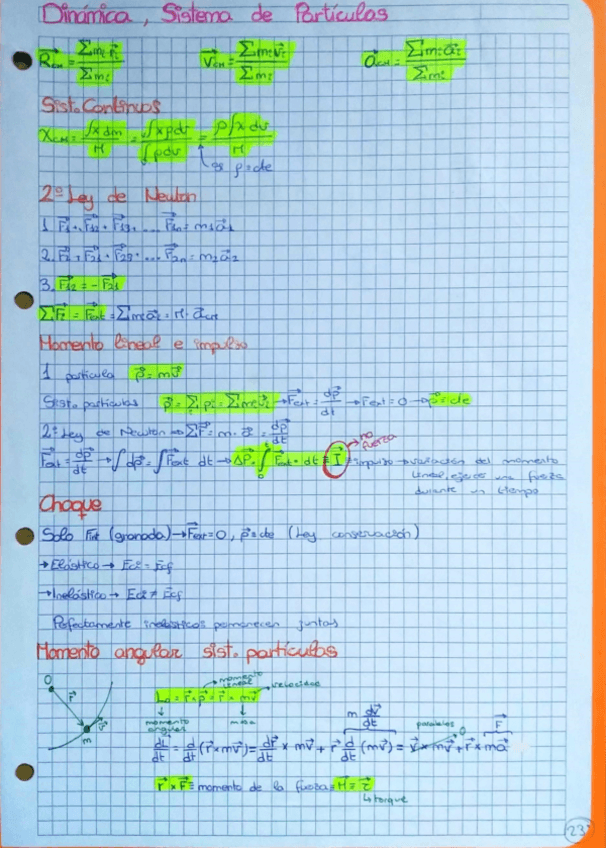 Dinámica, Sistema de Partículas
R⃗CM = Σmᵢr⃗ᵢ / Σmᵢ    V⃗CM = Σmᵢv⃗ᵢ / Σmᵢ    a⃗CM = Σmᵢa⃗ᵢ / Σmᵢ
Sist. Continuos
XCM = ∫x dm / M = ∫xρdv / ∫ρdv = ρ∫x dv / M
ρ = cte
2º Ley de Newton
1. F⃗1 + F⃗12 + F⃗13 + ... F⃗1n = m1a⃗1
2. F⃗2 + F⃗21 + F⃗23 + ... F⃗2n = m2a⃗2
3. F⃗12 = -F⃗21
ΣF⃗i = F⃗ext = Σmᵢa⃗ᵢ = M · a⃗CM
Momento lineal e impulso
1 partícula p⃗ = mv⃗
Sist. partículas p⃗ = Σpᵢ = Σmᵢv⃗ᵢ → F⃗ext = dp⃗/dt → Fext = 0 → p⃗ = cte
2º Ley de Newton → ΣF⃗ = m · a⃗ = dp⃗/dt
no fuerza
F⃗ext = dp⃗/dt → ∫dp⃗ = ∫F⃗ext dt → Δp⃗ = ∫F⃗ext · dt ≡ I⃗ ≡ impulso → variación del momento
lineal, ejerce una fuerza
durante un tiempo
Choque
Solo Fint (granada) → F⃗ext = 0, p⃗ = cte (Ley conservación)
→ Elástico → Eci = Ecf
→ Inelástico → Eci ≠ Ecf
Perfectamente inelásticos: permanecen juntas
Momento angular sist. partículas
O r⃗ v⃗ m
momento lineal
L⃗o = r⃗ × p⃗ = r⃗ × mv⃗ velocidad
momento angular masa
m dv⃗/dt paralelos 0 F⃗
dL⃗/dt = d/dt (r⃗ × mv⃗) = dr⃗/dt × mv⃗ + r⃗ d/dt (mv⃗) = v⃗ × mv⃗ + r⃗ × ma⃗
r⃗ × F⃗ ≡ momento de la fuerza = M⃗ = τ⃗
↳ torque
23